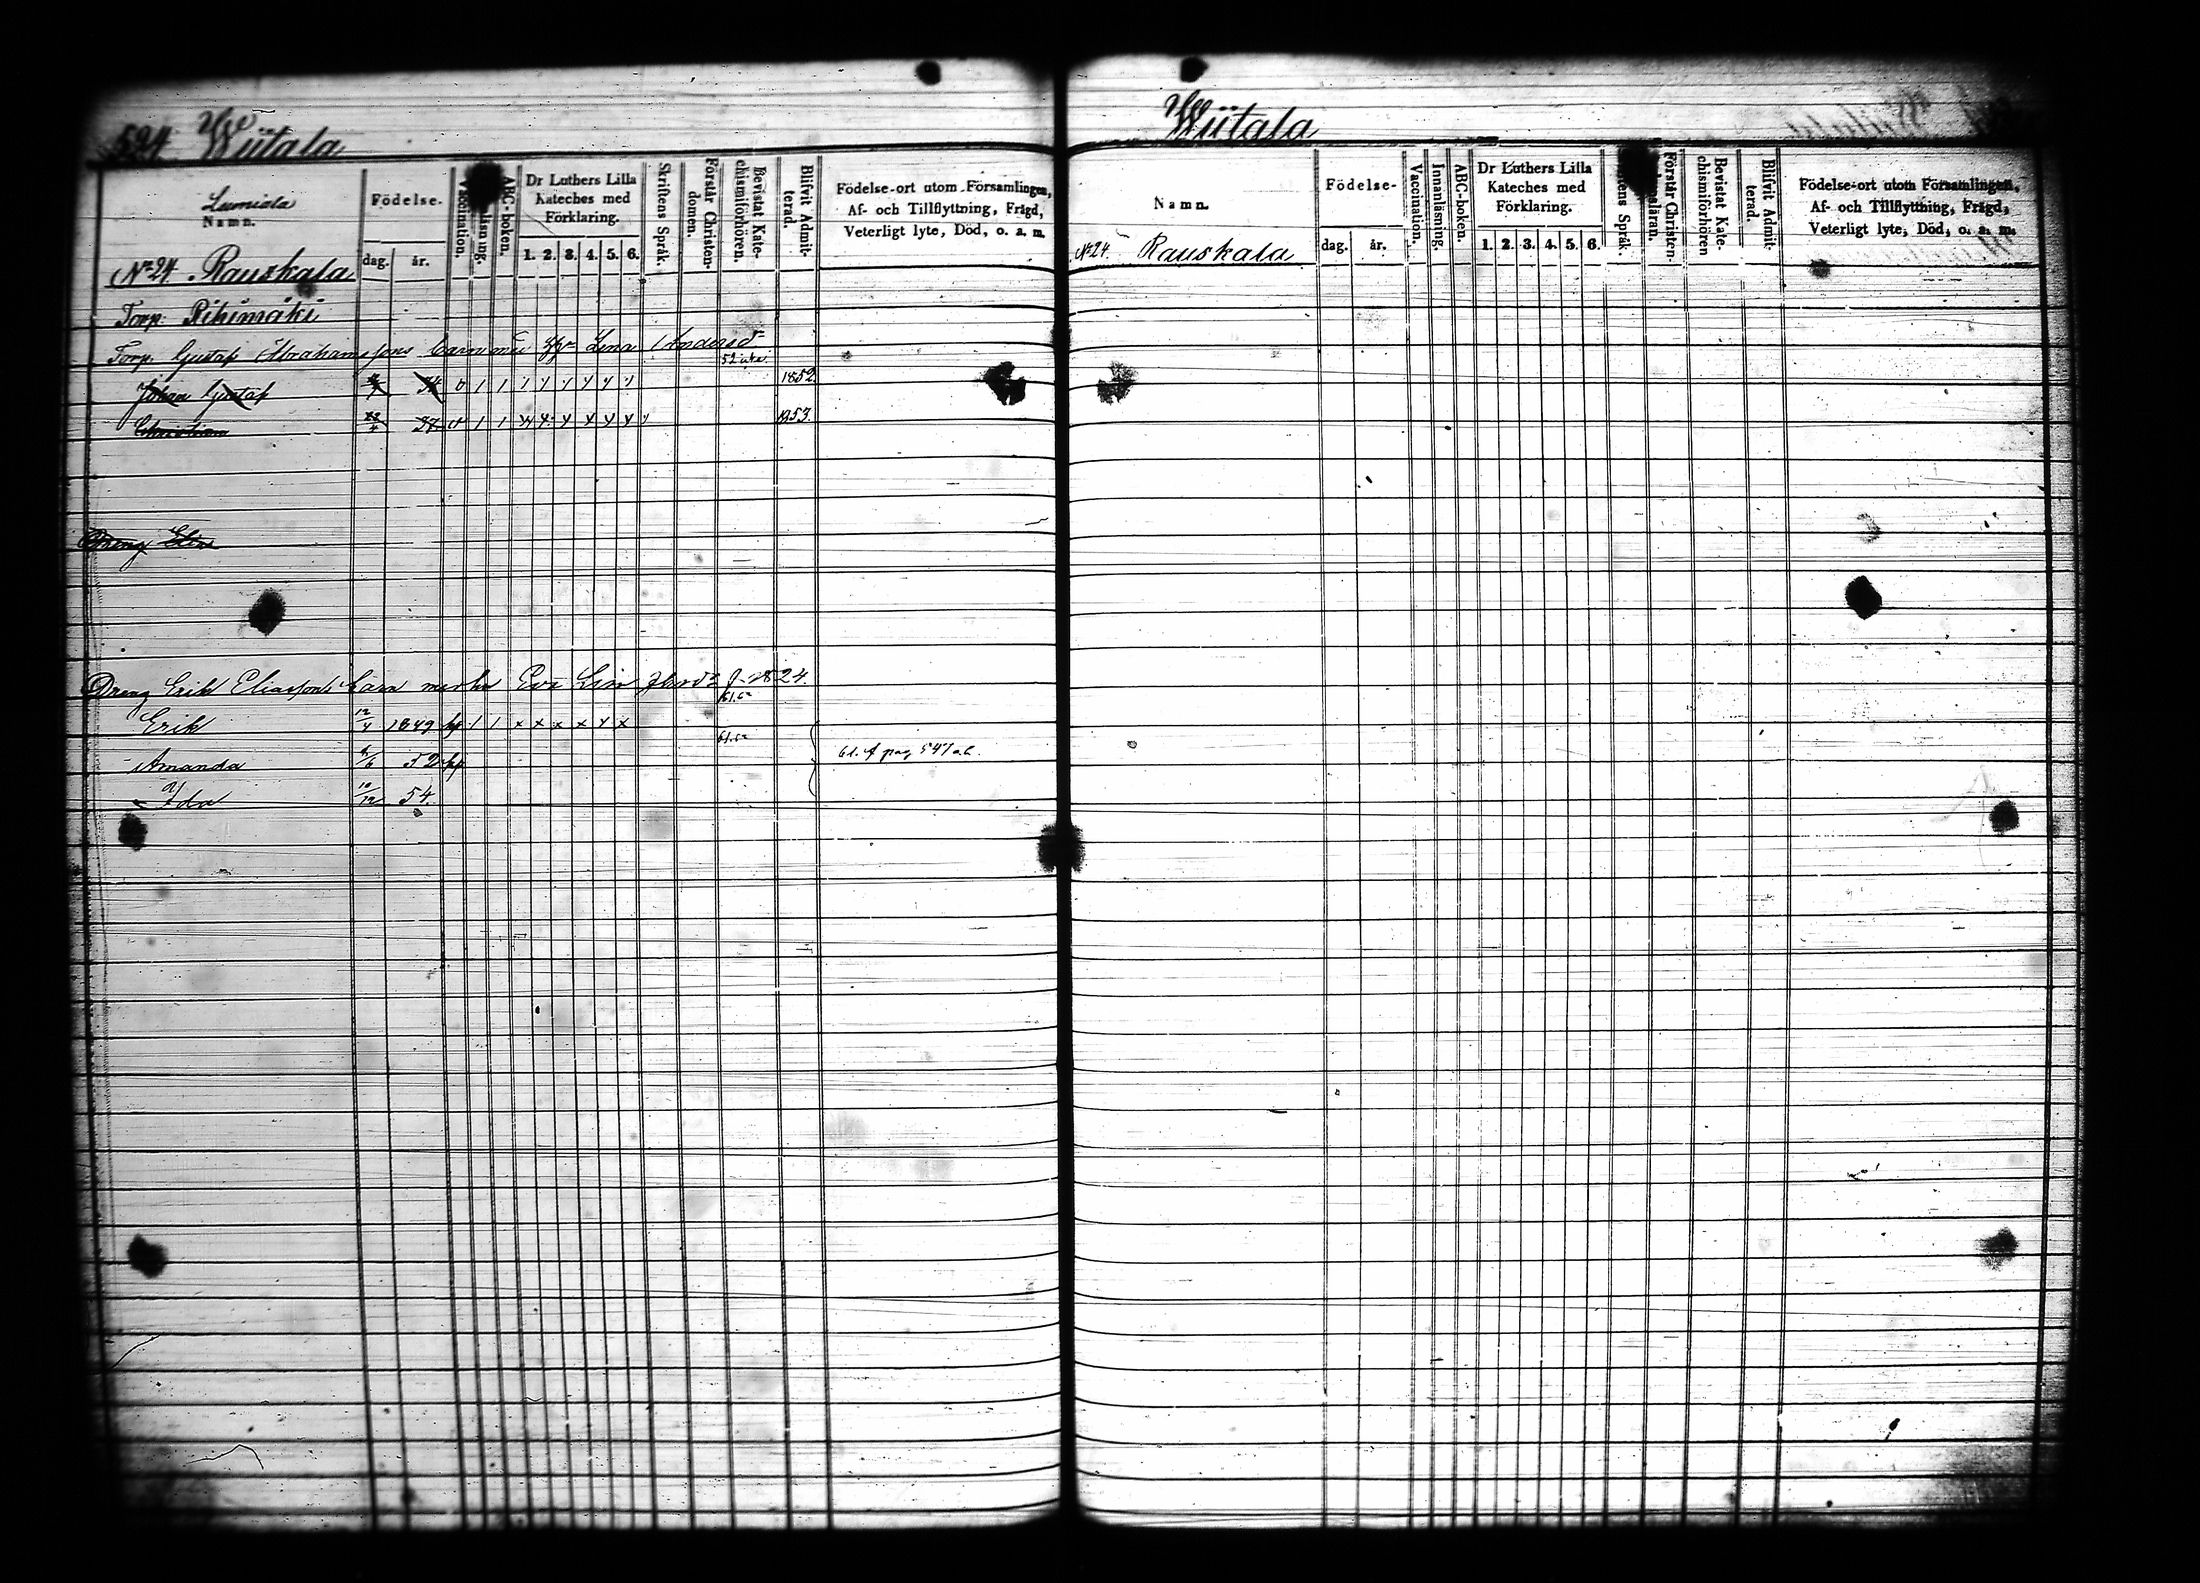 524 Wiitala
Lumiala
Namn.
Födelse-
dag. år.
Vaccination.
ABC-boken.
Dr Luthers Lilla
Kateches med
Förklaring.
1. 2. 3. 4. 5. 6.
Skriftens Språk.
Förstår Christen-
domen.
Bevistat Kate-
chismiförhören.
Blifvit Admit-
terad.
Födelse-ort utom Församlingen,
Af- och Tillflyttning, Frägd,
Veterligt lyte, Död, o. a. m.
No 24. Rauskala
Torp: Riihimäki
Torp. Gustaf Abrahamssons barn med Lena Andersd
Johan Gustaf 1852
Christian 1853.
Dreng Elias
Dreng Erik Eliassons barn med hu Eva Lisa f. 1824.
61.62
Erik 12/4 1849
61.62
Amanda 52
61. f pag 547
Ida 10/12 54.
Wiitala
Namn.
Födelse-
dag. år.
Vaccination.
Innanläsning.
ABC-boken.
Dr Luthers Lilla
Kateches med
Förklaring.
1. 2. 3. 4. 5. 6.
Språk.
Förstår Christen-
Bevistat Kate-
chismiförhören
Blifvit Admit-
terad.
Födelse-ort utom Församlingen,
Af- och Tillflyttning, Frägd,
Veterligt lyte, Död, o. a. m.
No 24. Rauskala